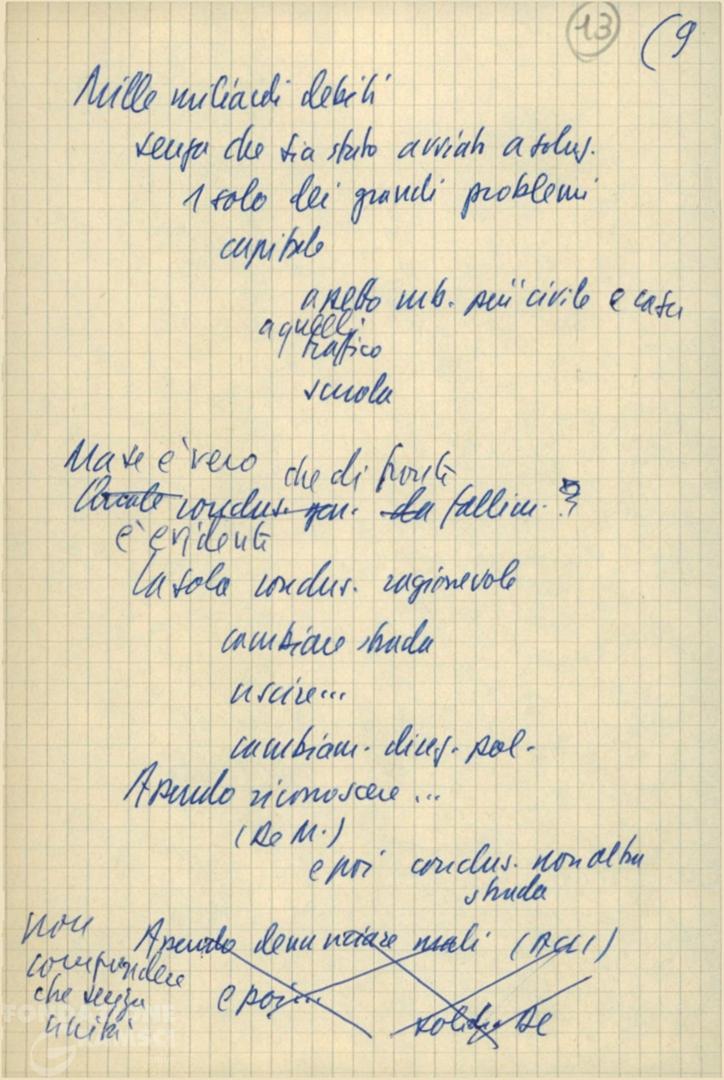 13 (9
Mille miliardi debiti
senza che sia stato avviato a soluz.
1 solo dei grandi problemi
capitale
aspetto urb. più civile e casa
a quelli
traffico
scuola
Ma se è vero che di fronte
conclus. fallim. ?
è evidente
la sola conclus. ragionevole
cambiare strada
uscire...
cambiam. direz. pol.
Assurdo riconoscere...
(De M.)
e poi conclus. non altra
strada
non
comprendere
che senza
unità
Assurdo denunziare mali (Acli)
e poi...
De
FONDAZIONE
GRAMSCI